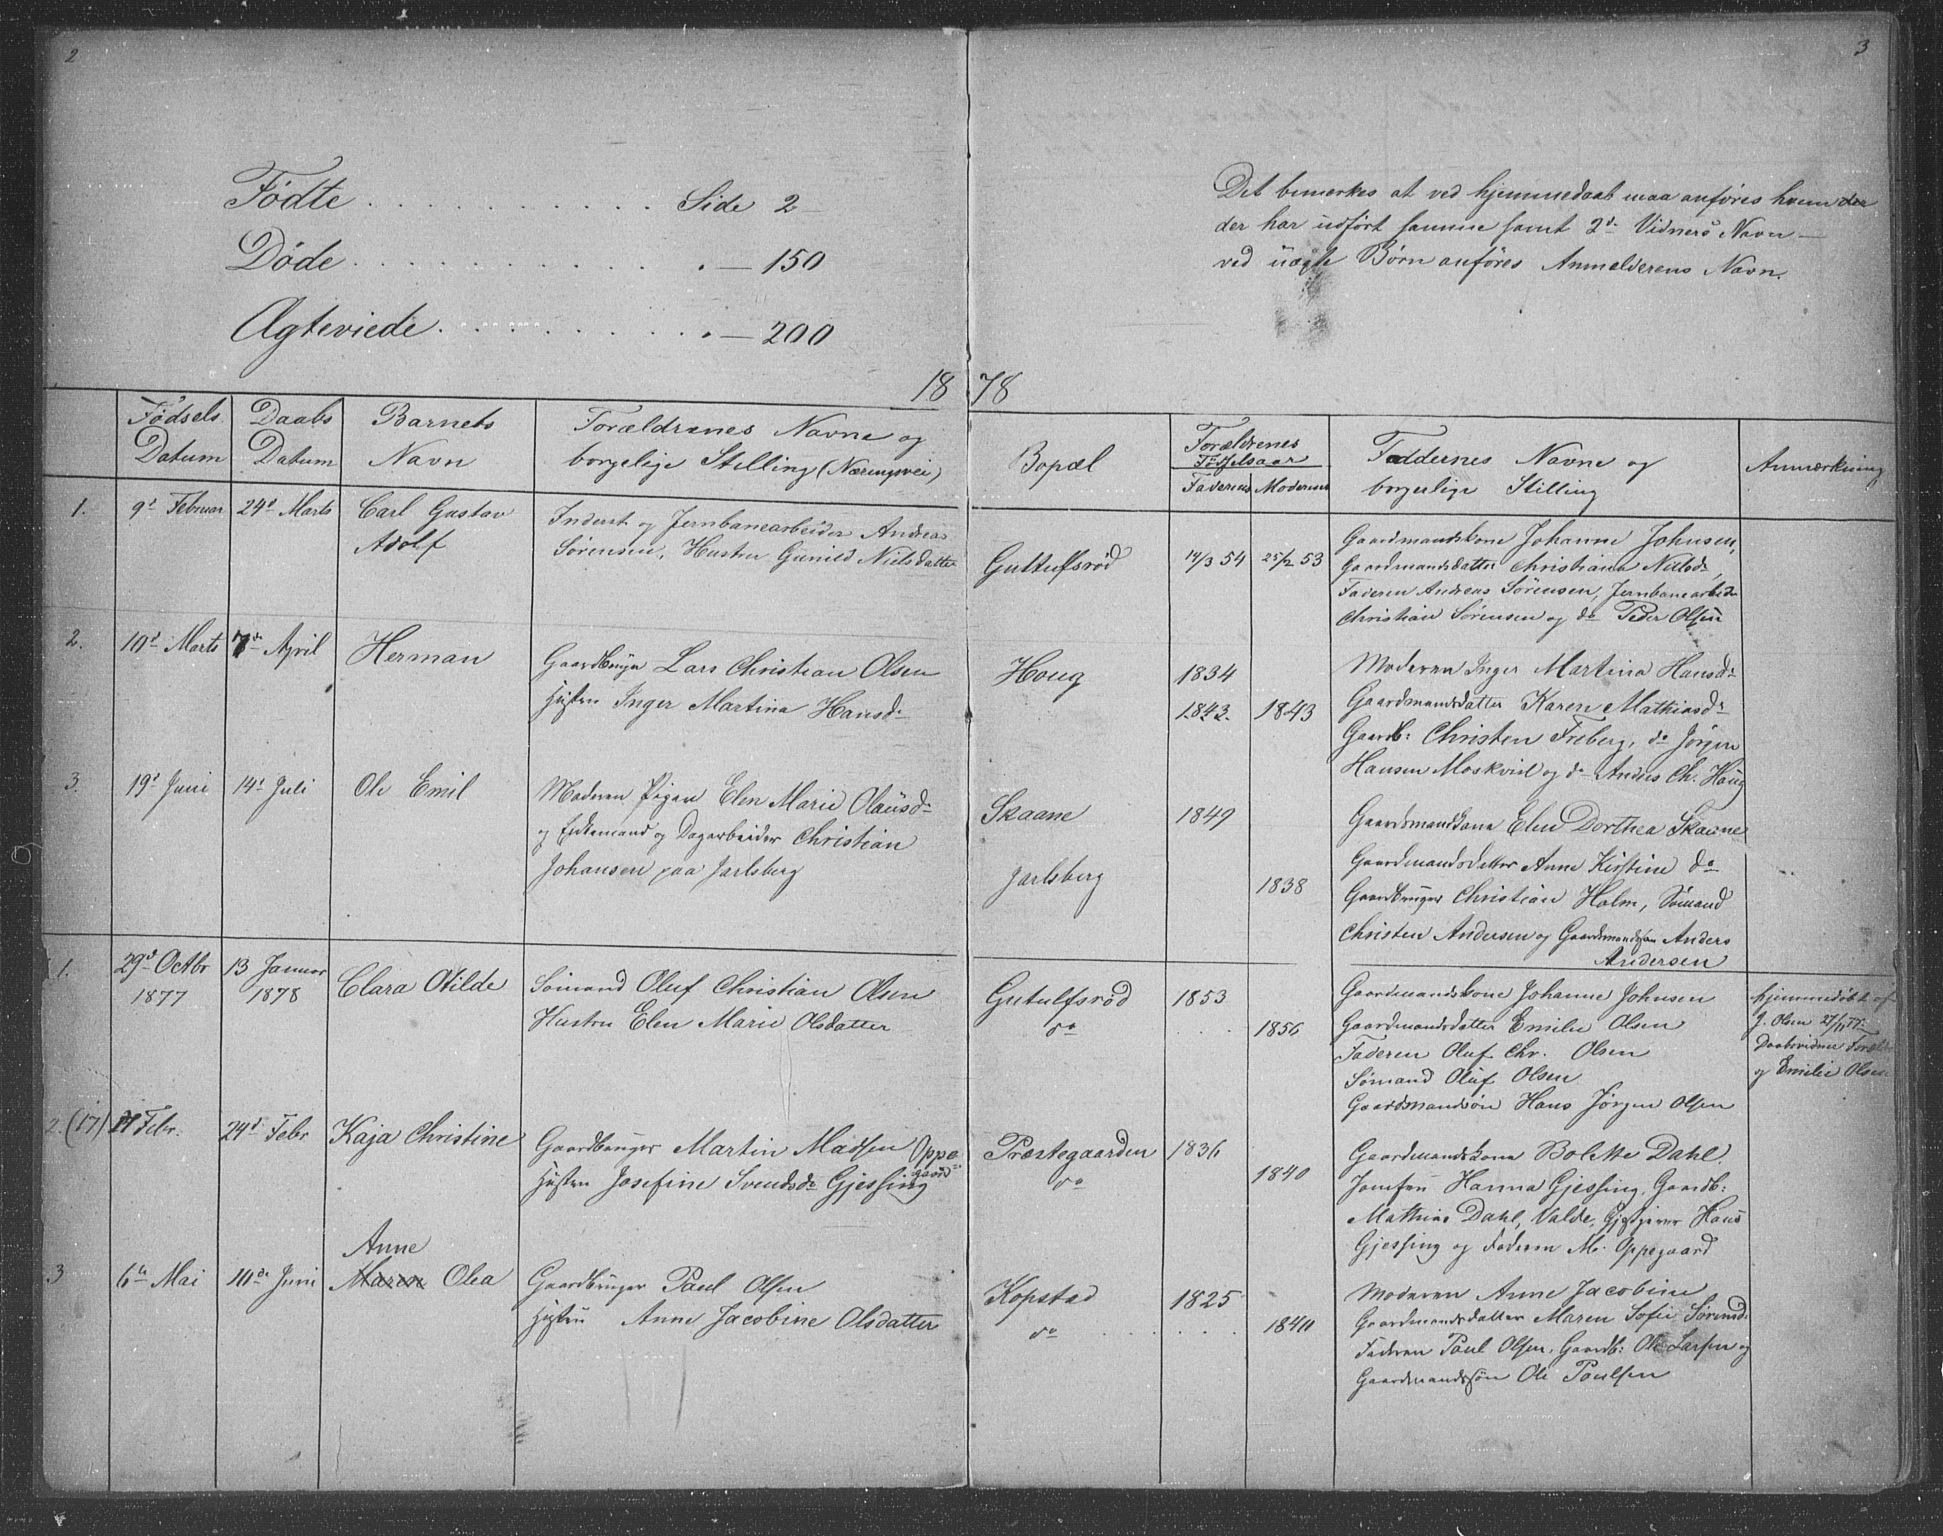 2
Fødte . . . . . . . . . . . . Side 2
Døde . . . . . . . . . . . . — 150
Ægteviede . . . . . . . . . — 200
18
Fødsels Datum
Daabs Datum
Barnets Navn
Forældrenes Navne og
borgelige Stilling (Næringsvei)
1. 9d Februar 24d Marts Carl Gustav
Adolf
Inderst og Jernbanearbeider Andreas
Sørensen, Hustru Gunild Nielsdatter
2. 10d Marts 7de April Herman
Gaardbruger Lars Christian Olsen
Hustru Inger Martina Hansd.
3. 19d Juni 14d Juli Ole Emil
Moderen Pigen Elen Marie Olausd.
og Enkemand og Dagarbeider Christian
Johansen paa Jarlsberg
1. 29d Octbr 1877 13 Januar 1878 Clara Otilde
Sømand Oluf Christian Olsen
Hustru Elen Marie Olsdatter
2. (17) Febr. 24d Febr Kaja Christine
Gaardbruger Martin Madsen Oppegaard
Hustru Josefine Svendsd. Gjessing
Anne
3 6te Mai 10de Juni Maren Olea
Gaardbruger Paul Olsen
Hustru Anne Jacobine Olsdatter
3
Det bemærkes at ved hjemmedaab maa anføres hvem der
der har udført samme samt 2de Vidners Navn —
ved uægte Børn anføres Anmelderens Navn.
78
Bopæl
Forældrenes
Fødselsaar
Faderens Moderens
Faddernes Navne og
borgerlige Stilling
Anmærkning
Guttulfsrød 14/3 54 25/12 53
Gaardmandskone Johanne Johnsen,
Gaardmandsdatter Christiane Nilsd.,
Faderen Andreas Sørensen, Jernbanearbeider
Christian Sørensen og do Peder Olsen
Houg 1834
1842. 1843
Moderen Inger Martina Hansd.
Gaardmandsdatter Karen Mathiasd.
Gaardb: Christen Freberg, do Jørgen
Hansen Moskvil og do Anders Ch. Houg
Skaane 1849
Jarlsberg 1838
Gaardmandskone Elen Dorthea Skaane
Gaardmandsdatter Anne Kirstine do
Gaardbruger Christian Holm, Sømand
Christen Andersen og Gaardmandssøn Anders
Andersen
Gutulfsrød 1853
do . . . . 1856
Gaardmandskone Johanne Johnsen
Gaardmandsdatter Emilie Olsen
Faderen Oluf Chr. Olsen
Sømand Oluf Olsen
Gaardmandssøn Hans Jørgen Olsen
hjemmedøbt af
J. Olsen 27/11 77.
Daabsvidner
og Emilie Olsen
Præstegaarden 1836
do 1840
Gaardmandskone Bolette Dahl.
Jomfru Hanna Gjessing. Gaardb:
Mathias Dahl, Valde, Gjestgiver Hans
Gjessing og Faderen M. Oppegaard
Kopstad 1825
do . . . . . 1840
Moderen Anne Jacobine
Gaardmandsdatter Maren Sofie Sørensd.
Faderen Paul Olsen. Gaardb: Ole Larsen og
Gaardmandssøn Ole Paulsen